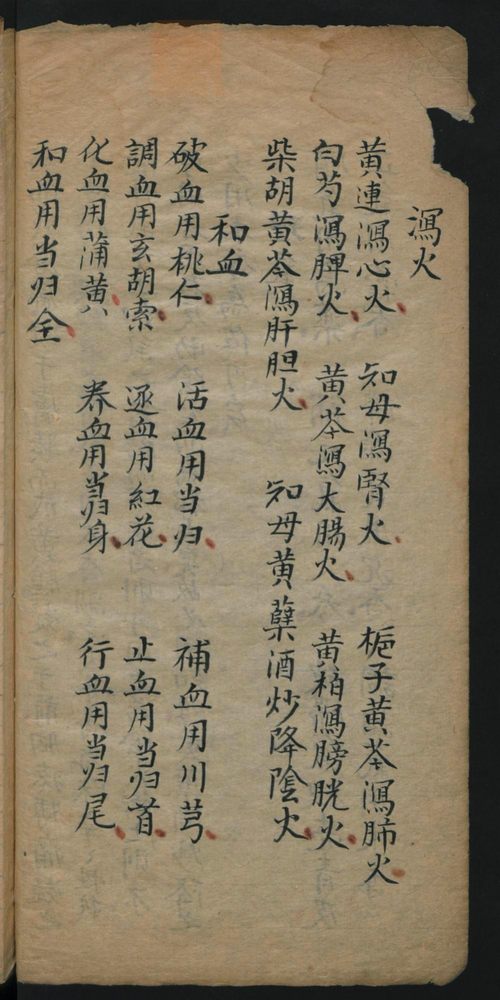 瀉火
黃連瀉心火 知母瀉腎火 梔子黃芩瀉肺火
白芍瀉脾火 黃芩瀉大腸火 黃柏瀉膀胱火
柴胡黃芩瀉肝胆火 知母黃蘗酒炒降陰火
和血
破血用桃仁 活血用当归 補血用川芎
調血用玄胡索 逐血用紅花 止血用当归首
化血用蒲黃 养血用当归身 行血用当归尾
和血用当归全